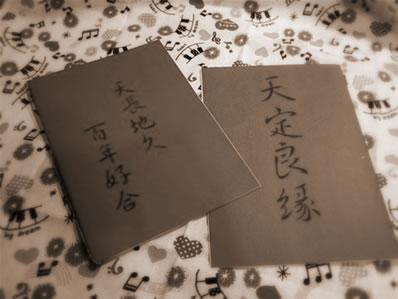 天长地久
百年好合
天定良缘